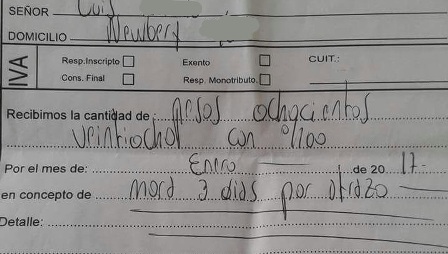 SEÑOR Luis
DOMICILIO Newbery
IVA
Resp.Inscripto Exento CUIT.:
Cons. Final Resp. Monotributo.
Recibimos la cantidad de pesos ochocientos
veintiocho con 0/100
Por el mes de: Enero de 20 17-
en concepto de mora 3 dias por atrazo
Detalle: